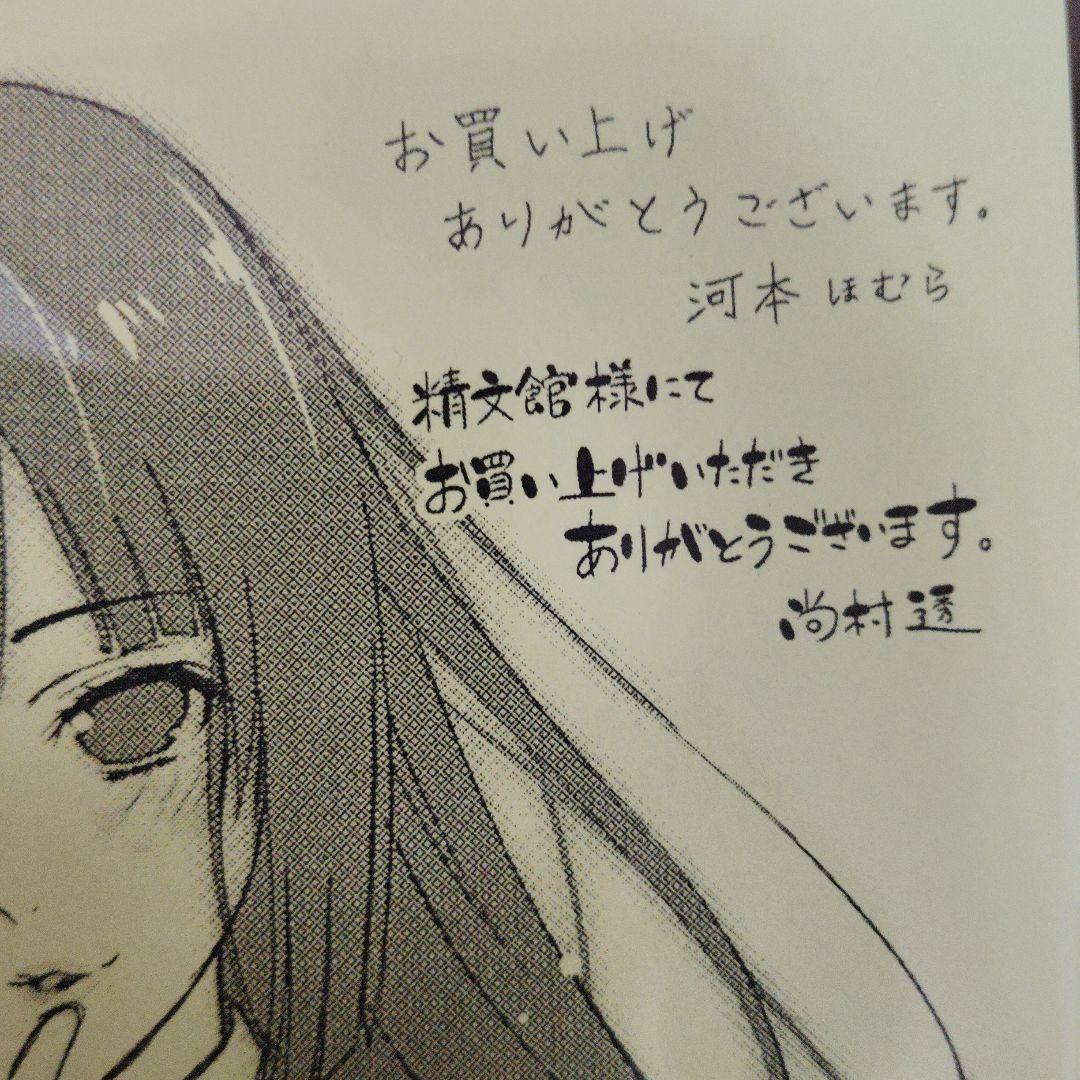 お買い上げ
ありがとうございます。
河本ほむら
精文館様にて
お買い上げいただき
ありがとうございます。
尚村透